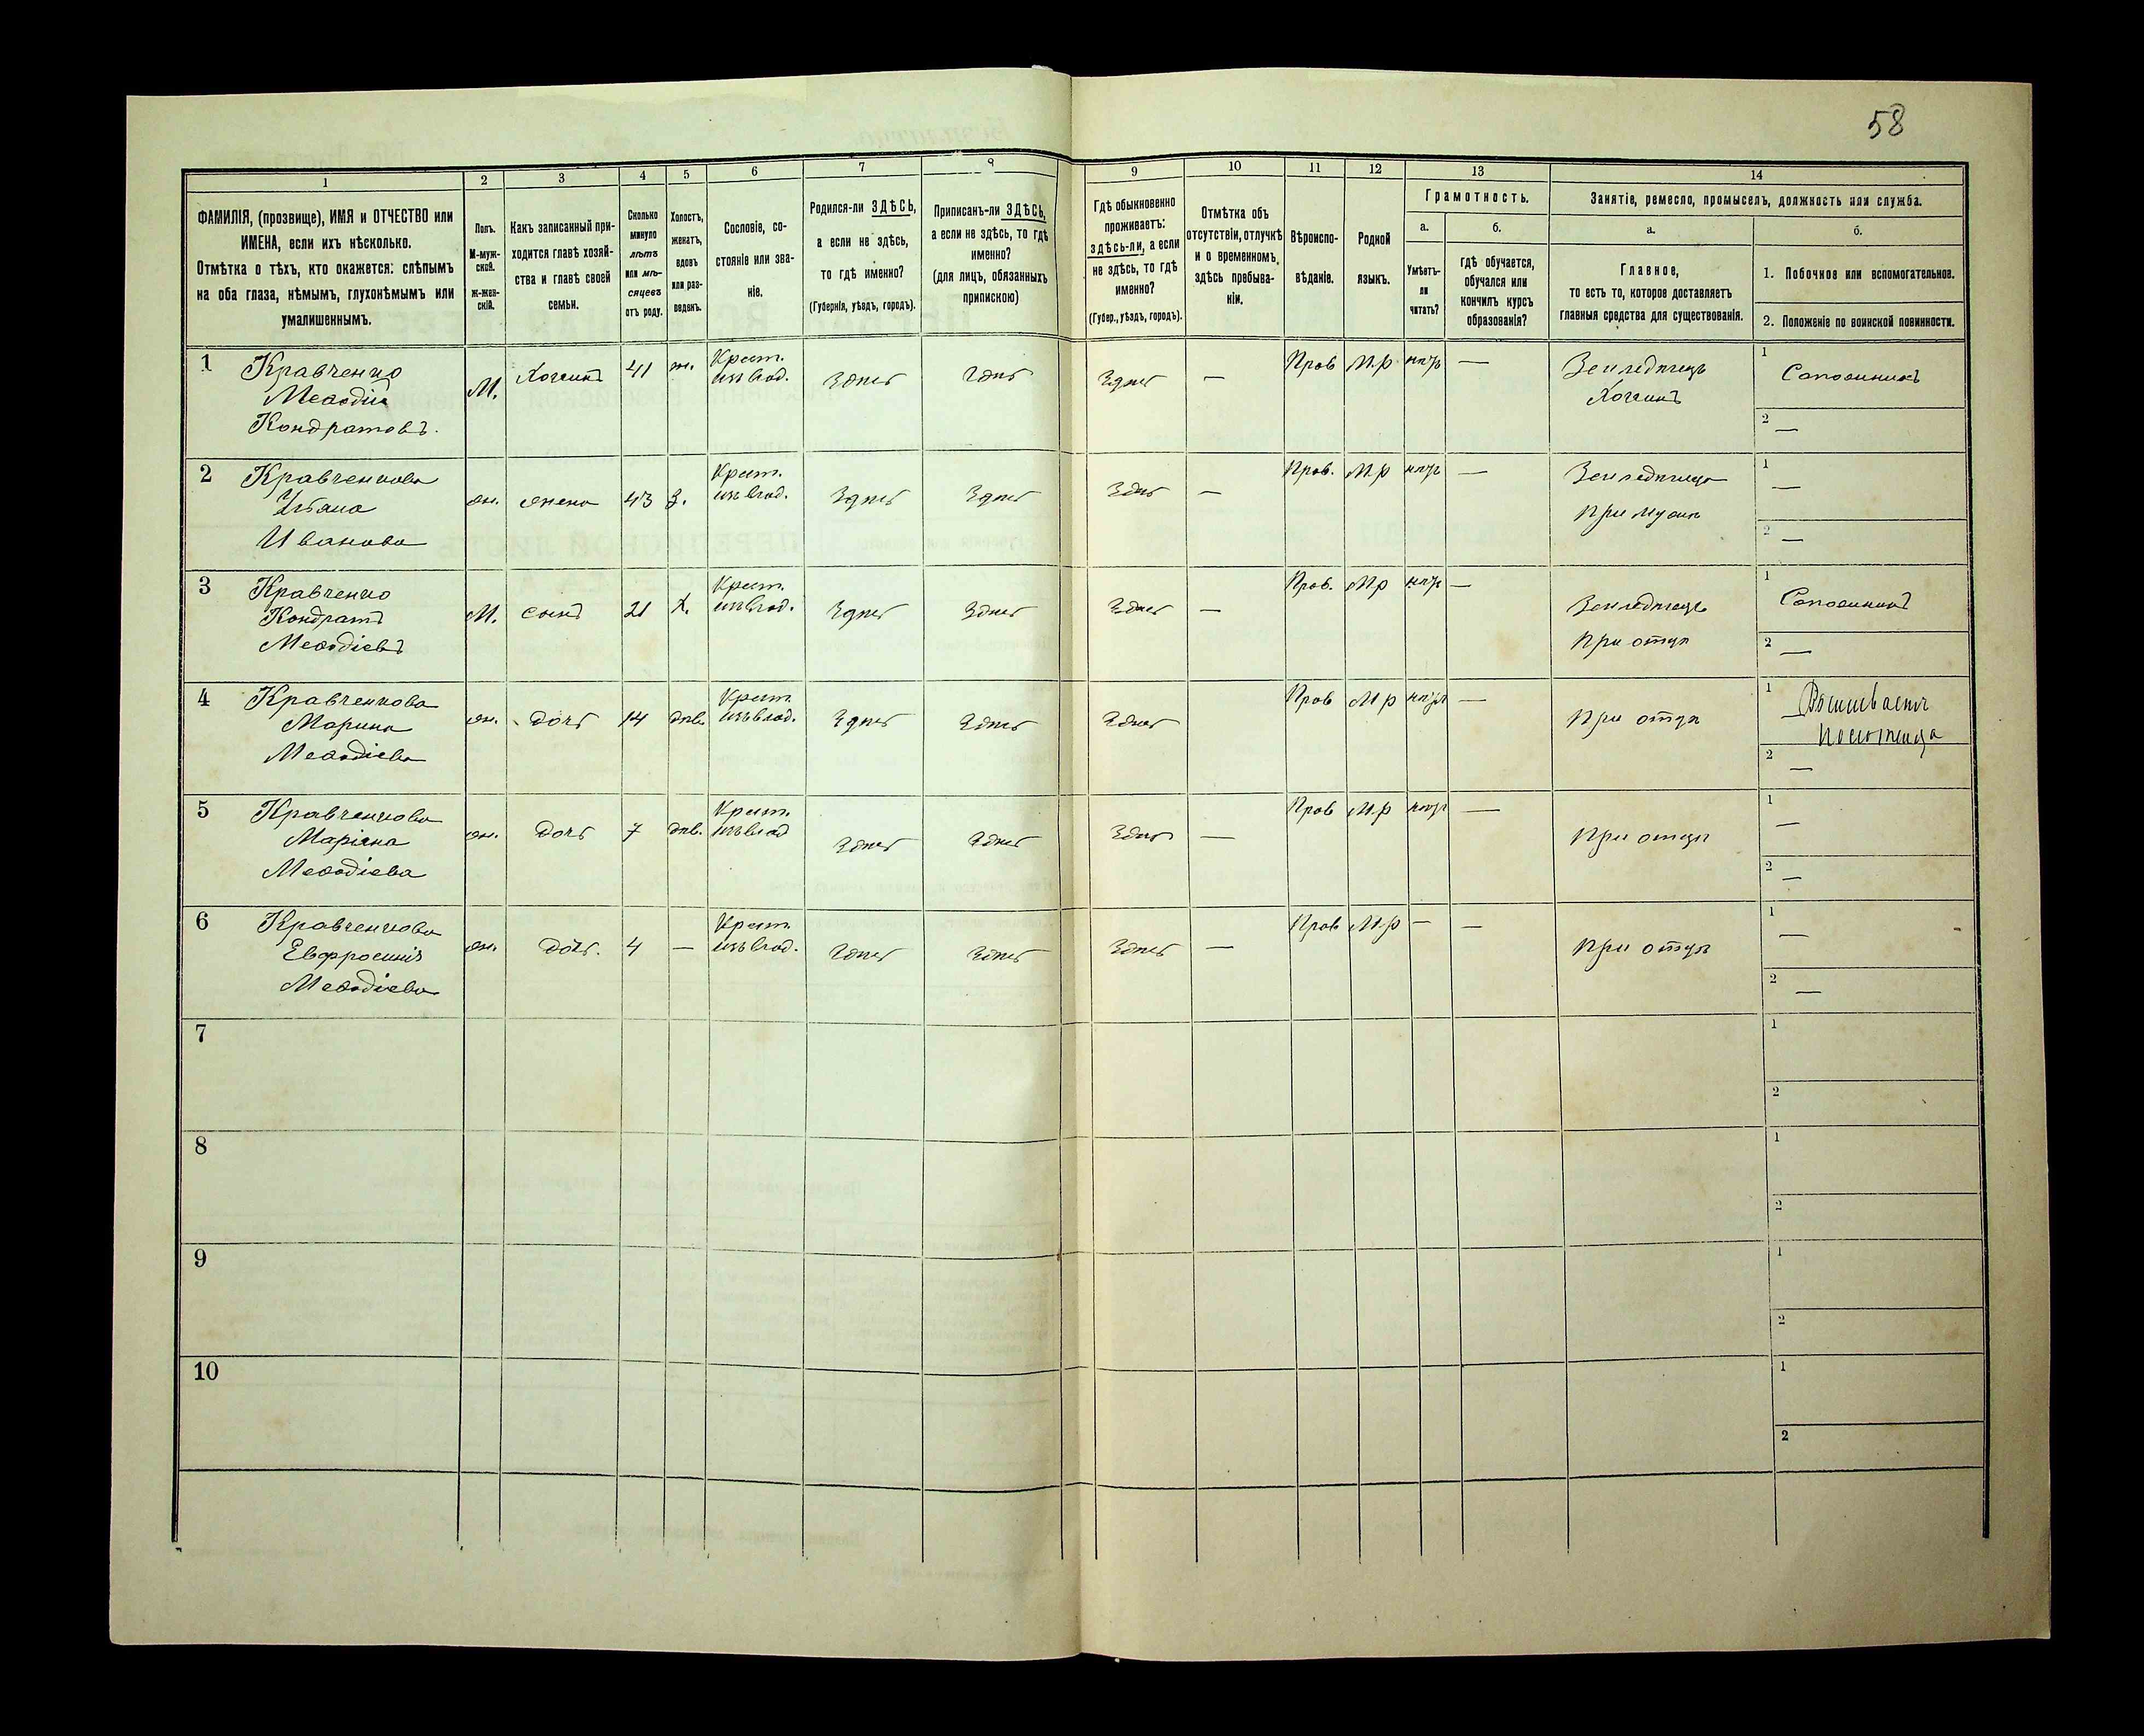 58
1 2 3 4 5 6 7 8 9 10 11 12 13 14
ФАМИЛІЯ, (прозвище), ИМЯ и ОТЧЕСТВО или
ИМЕНА, если ихъ нѣсколько.
Отмѣтка о тѣхъ, кто окажется: слѣпымъ
на оба глаза, нѣмымъ, глухонѣмымъ или
умалишеннымъ.
Полъ.
М-муж-
ской.
Ж-жен-
скій.
Какъ записанный при-
ходится главѣ хозяй-
ства и главѣ своей
семьи.
Сколько
минуло
лѣтъ
или мѣ-
сяцевъ
отъ роду.
Холостъ,
женатъ,
вдовъ
или раз-
веденъ.
Сословіе, со-
стояніе или зва-
ніе.
Родился-ли ЗДѢСЬ,
а если не здѣсь,
то гдѣ именно?
(Губернія, уѣздъ, городъ).
Приписанъ-ли ЗДѢСЬ,
а если не здѣсь, то гдѣ
именно?
(для лицъ, обязанныхъ
припискою)
Гдѣ обыкновенно
проживаетъ:
здѣсь-ли, а если
не здѣсь, то гдѣ
именно?
(Губер., уѣздъ, городъ).
Отмѣтка объ
отсутствіи, отлучкѣ
и о временномъ
здѣсь пребыва-
ніи.
Вѣроиспо-
вѣданіе.
Родной
языкъ.
Грамотность.
а.
Умѣетъ-
ли
читать?
б.
гдѣ обучается,
обучался или
кончилъ курсъ
образованія?
Занятіе, ремесло, промыселъ, должность или служба.
а.
Главное,
то есть то, которое доставляетъ
главныя средства для существованія.
б.
1. Побочное или вспомогательное.
2. Положеніе по воинской повинности.
1 Кравченко
Меѳодій
Кондратовъ.
М. Хозяинъ 41 ж.
Крест.
изъ влад.
Здѣсь Здѣсь Здѣсь — Пров М.р нѣтъ —
Земледѣлецъ
Хозяинъ
1 Сапожникъ
2 —
2 Кравченкова
Ульяна
Иванова
ж. жена 43 з.
Крест.
изъ влад.
Здѣсь Здѣсь Здѣсь — Пров. М.р нѣтъ —
Земледѣлица
При мужѣ
1 —
2 —
3 Кравченко
Кондратъ
Меѳодіевъ
М. сынъ 21 х.
Крест.
изъ влад.
Здѣсь Здѣсь Здѣсь — Пров. М р нѣтъ —
Земледѣлецъ
При отцѣ
1 Сапожникъ
2 —
4 Кравченкова
Марина
Меѳодіева
ж. дочь 14 дѣв.
Крест.
изъ влад.
Здѣсь Здѣсь Здѣсь Пров М р нѣтъ —
При отцѣ
1 Вышиваетъ
2 —
5 Кравченкова
Маріана
Меѳодіева
ж. дочь 7 дѣв.
Крест.
изъ влад
Здѣсь Здѣсь Здѣсь — Пров М.р нѣтъ —
При отцѣ
1 —
2 —
6 Кравченкова
Евфросинія
Меѳодіева
ж. дочь. 4 —
Крест.
изъ влад.
Здѣсь Здѣсь Здѣсь — Пров М.р — —
При отцѣ
1 —
2 —
7
1
2
8
1
2
9
1
2
10
1
2